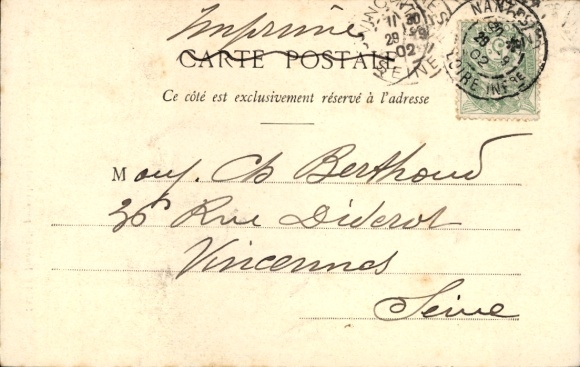 Imprimé
CARTE POSTALE
Ce côté est exclusivement réservé à l'adresse
NANTES
29
02
LOIRE INFRE
11 30
29
02
SEINE
M Ch Berthoud
Rue Diderot
Vincennes
Seine